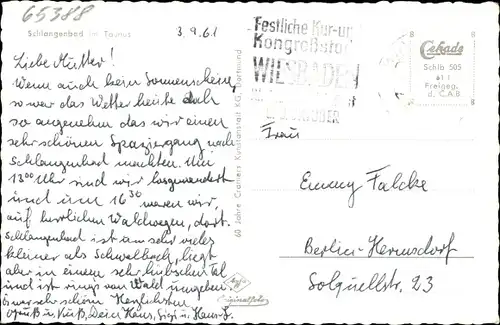 65388
Schlangenbad im Taunus
3.9.61
Liebe Mutter!
Wenn auch kein Sonnenschein,
so war das Wetter heute doch
so angenehm das wir einen
sehr schönen Spaziergang nach
Schlangenbad machten. Um
13 00 Uhr sind wir losgewandert
und um 16 30 waren wir,
auf herrlichen Waldwegen, dort.
Schlangenbad ist um sehr vieles
kleiner als Schwalbach, liegt
aber in einem sehr hübschen Tal
und ist rings von Wald umgeben.
Es war sehr schön Herzlichsten
Gruß u. Kuß, Dein Hans, Sigi u. Hans-J.
60 Jahre Cramers Kunstanstalt KG, Dortmund
Agfa
Originalfoto
Festliche Kur- u
Kongreßstadt
WIESBADEN
Cekade
Schlb 505
Freigeg.
d. C.A.B
Frau
Emmy Falcke
Berlin-Hermsdorf
Solquellstr. 23